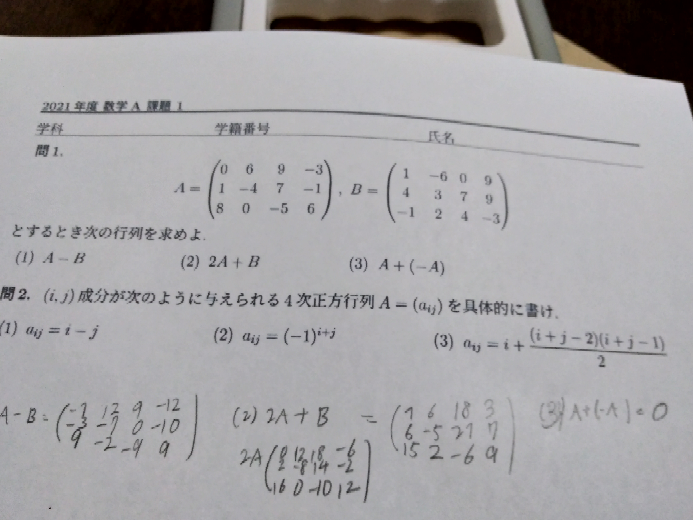 2021年度 数学A 課題1
学科 学籍番号 氏名
問1.
A = (0 6 9 −3
1 −4 7 −1
8 0 −5 6), B = (1 −6 0 9
4 3 7 9
−1 2 4 −3)
とするとき次の行列を求めよ.
(1) A − B (2) 2A + B (3) A + (−A)
問2. (i, j) 成分が次のように与えられる4次正方行列 A = (aij) を具体的に書け.
(1) aij = i − j (2) aij = (−1)^{i+j} (3) aij = i + (i + j − 2)(i + j − 1)/2
A−B = (-1 12 9 -12
-3 -7 0 -10
9 -2 -9 9)
(2) 2A + B = (1 6 18 3
6 -5 21 7
15 2 -6 9)
(3) A+(-A) = 0
2A (0 12 18 -6
2 -8 14 -2
16 0 -10 12)